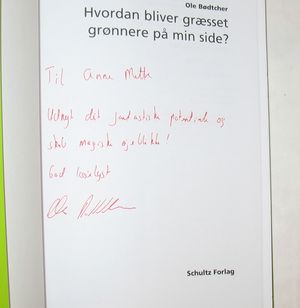 Ole Bødtcher
Hvordan bliver græsset
grønnere på min side?
Til Anne Mette
Udnyt det fantastiske potentiale og
skab magiske øjeblikke!
God læselyst
Schultz Forlag